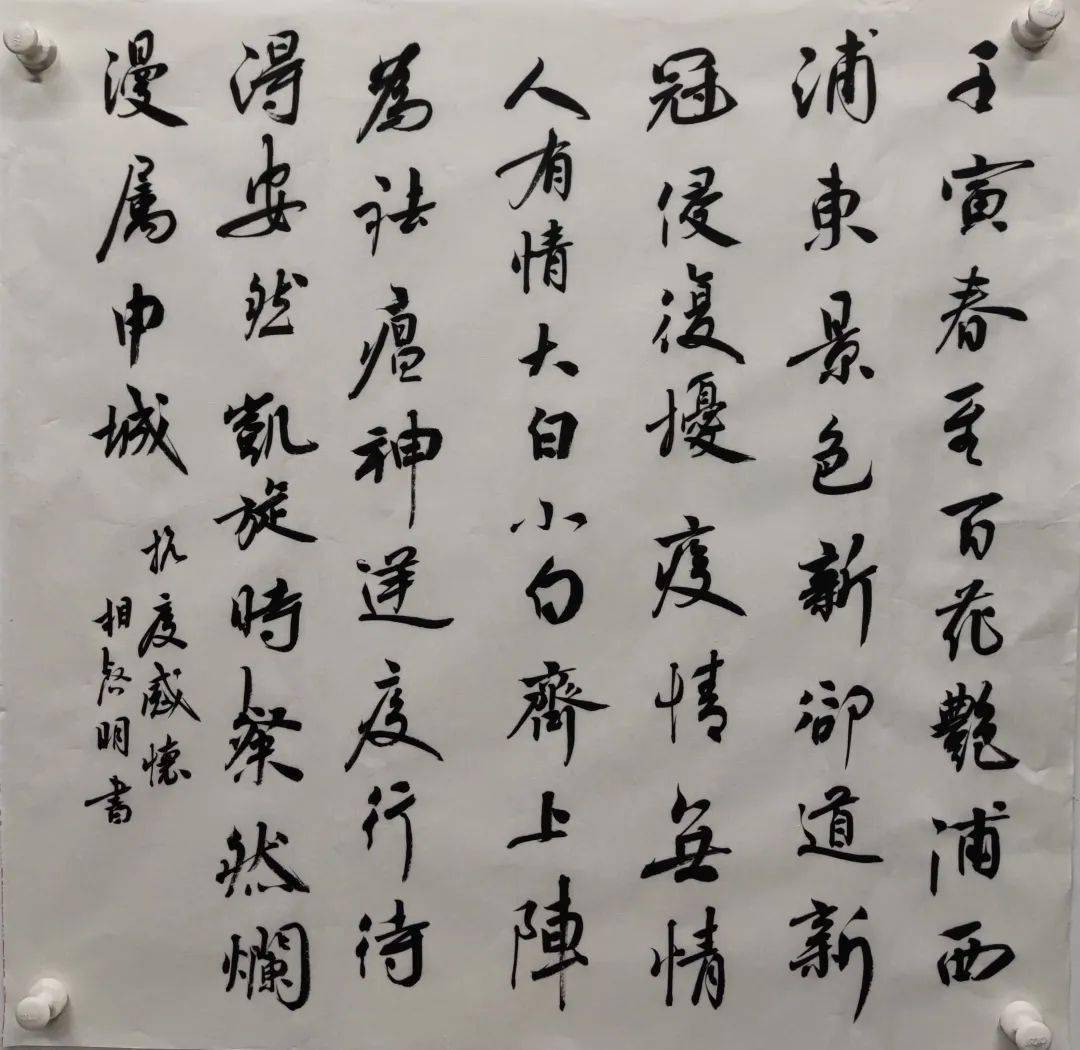 壬寅春至百花艷浦西
浦東景色新卻道新
冠侵復擾疫情無情
人有情大白小白齊上陣
為祛瘟神逆疫行待
得安然凱旋時粲然爛
漫属申城
抗疫感懷
相啓明書